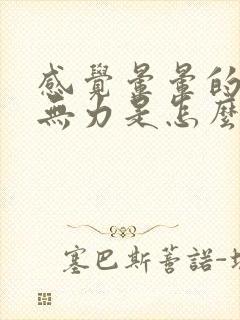 感覺暈暈的
無力是怎麼
塞巴斯蒂諾-塔